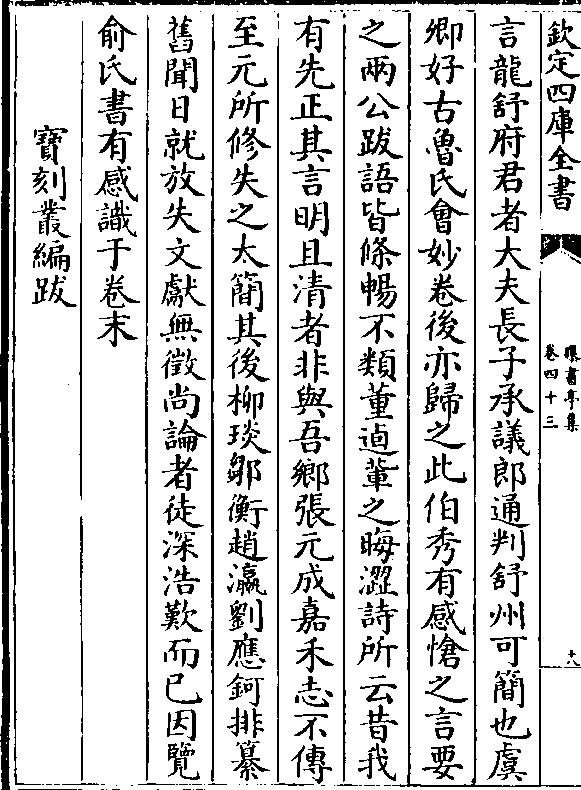 欽定四庫全書
曝書亭集
卷四十三
十八
言龍舒府君者大夫長子承議郎通判舒州可簡也虞
卿好古魯氏會妙卷後亦歸之此伯秀有感愴之言要
之兩公跋語皆條暢不類董逌輩之晦澀詩所云昔我
有先正其言明且清者非與吾鄉張元成嘉禾志不傳
至元所修失之太簡其後柳琰鄒衡趙瀛劉應鈳排纂
舊聞日就放失文獻無徵尚論者徒深浩歎而已因覽
俞氏書有感識于卷末
寶刻叢編跋